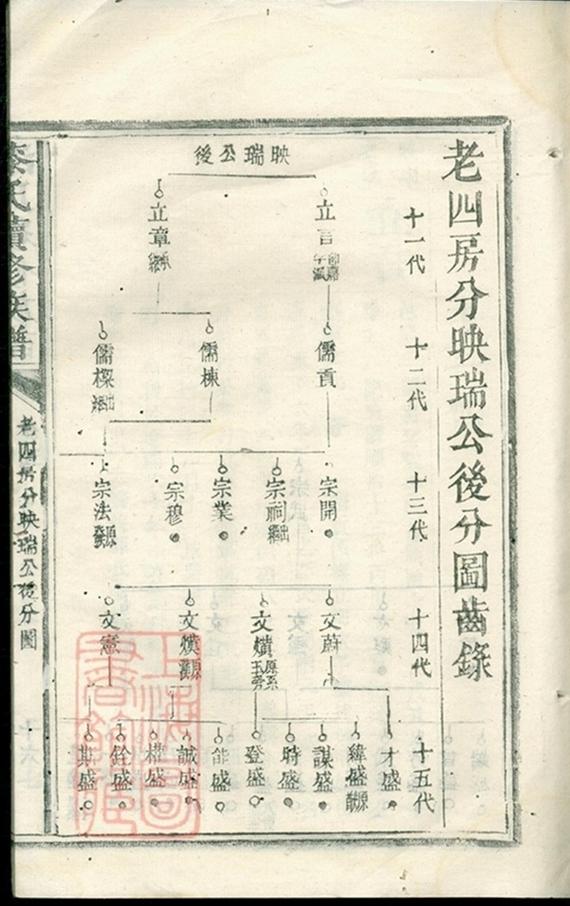 老四房分映瑞公後分圖齒錄
十一代
十二代
十三代
十四代
十五代
映瑞公後
立言
立章
儒貢
儒棟
儒櫟
宗開
宗祠
宗業
宗穆
宗法
文蔚
文㸁 原系玉旁
文憲
才盛
緯盛
謀盛
時盛
登盛
能盛
誠盛
權盛
銓盛
其盛
氏續修族譜
老四房分映瑞公後分圖